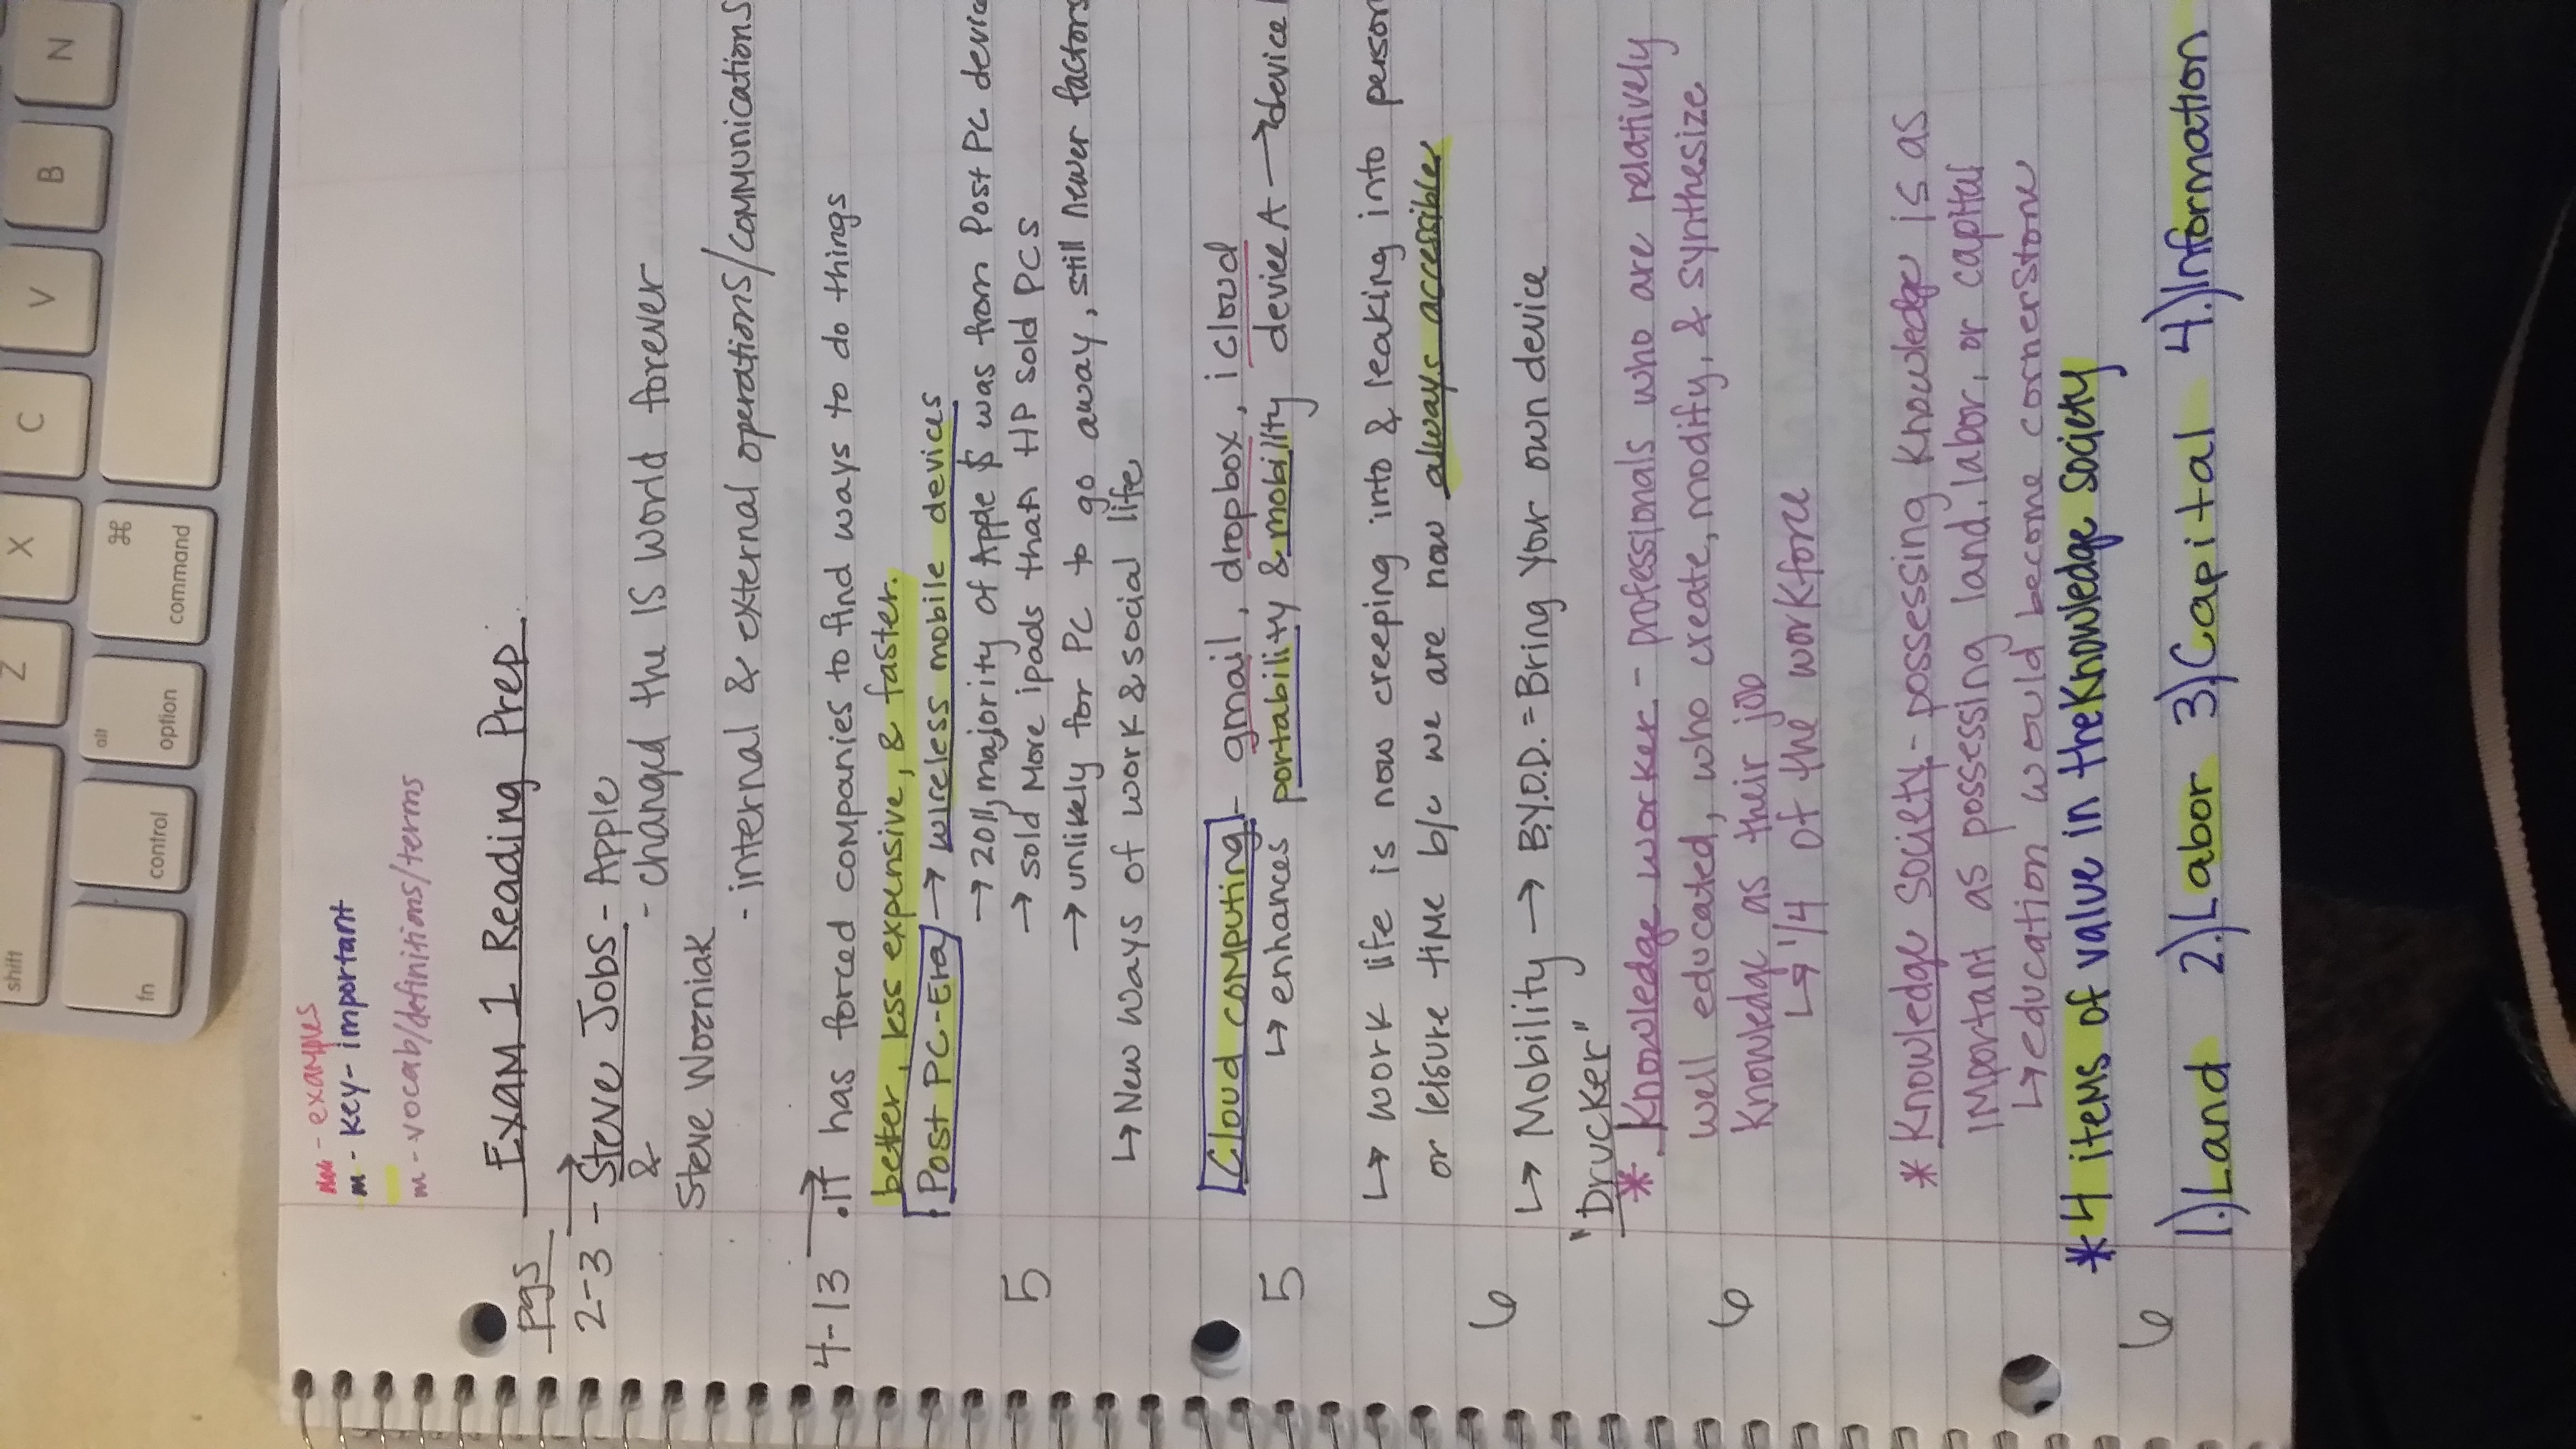 shift
Z
X
C
V
B
N
fn
control
alt
option
⌘
command
m - examples
m - key - important
m - vocab/definitions/terms
Exam 1 Reading Prep
pgs
2-3 - Steve Jobs - Apple
& - changed the IS world forever
Steve Wozniak
- internal & external operations/communications
4-13 . IT has forced companies to find ways to do things
better, less expensive, & faster.
Post PC-Era → wireless mobile devices
→ 2011, majority of Apple $ was from Post PC device
5 → sold more ipads that HP sold PCS
→ unlikely for PC to go away, still newer factors
↳ New ways of work & social life
Cloud computing - gmail, dropbox, icloud
5 ↳ enhances portability & mobility device A → device
↳ work life is now creeping into & leaking into person
or leisure time b/c we are now always accessible
6 ↳ Mobility → B.Y.O.D. = Bring Your own device
"Drucker"
* Knowledge worker - professionals who are relatively
well educated, who create, modify, & synthesize
6 knowledge as their job
↳ 1/4 of the workforce
* Knowledge society - possessing knowledge is as
important as possessing land, labor, or capital
↳ education would become cornerstone
* 4 items of value in the Knowledge society
6 1.) Land 2.) Labor 3.) Capital 4.) Information